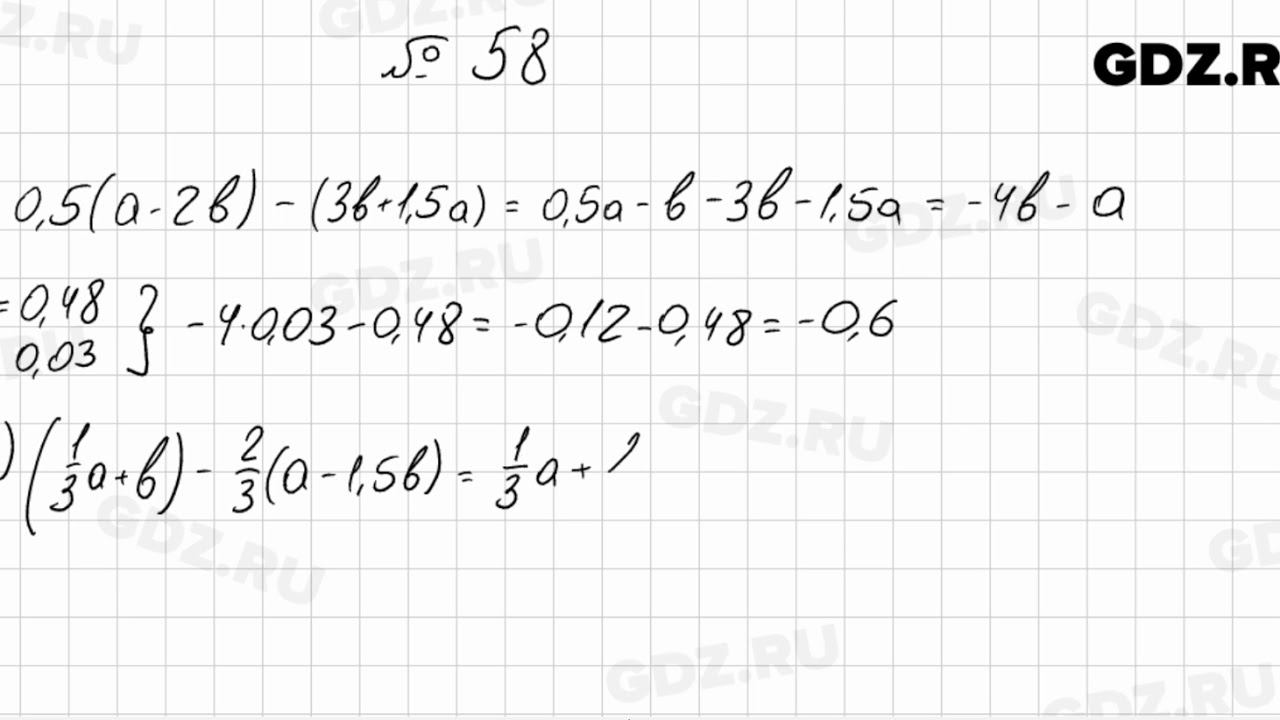 № 58
GDZ.R
0,5(a-2b) - (3b+1,5a) = 0,5a - b - 3b - 1,5a = -4b - a
= 0,48
0,03 } - 4·0,03 - 0,48 = -0,12 - 0,48 = -0,6
) (1/3 a + b) - 2/3 (a - 1,5b) = 1/3 a +
GDZ.RU
GDZ.RU
GDZ.RU
GDZ.RU
GDZ.RU
GDZ.RU
GDZ.RU
GDZ.RU
GDZ.RU